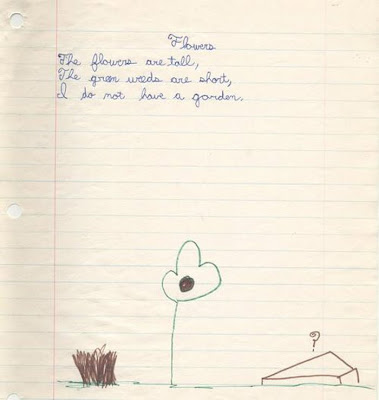 Flowers
The flowers are tall,
The green weeds are short,
I do not have a garden.
?